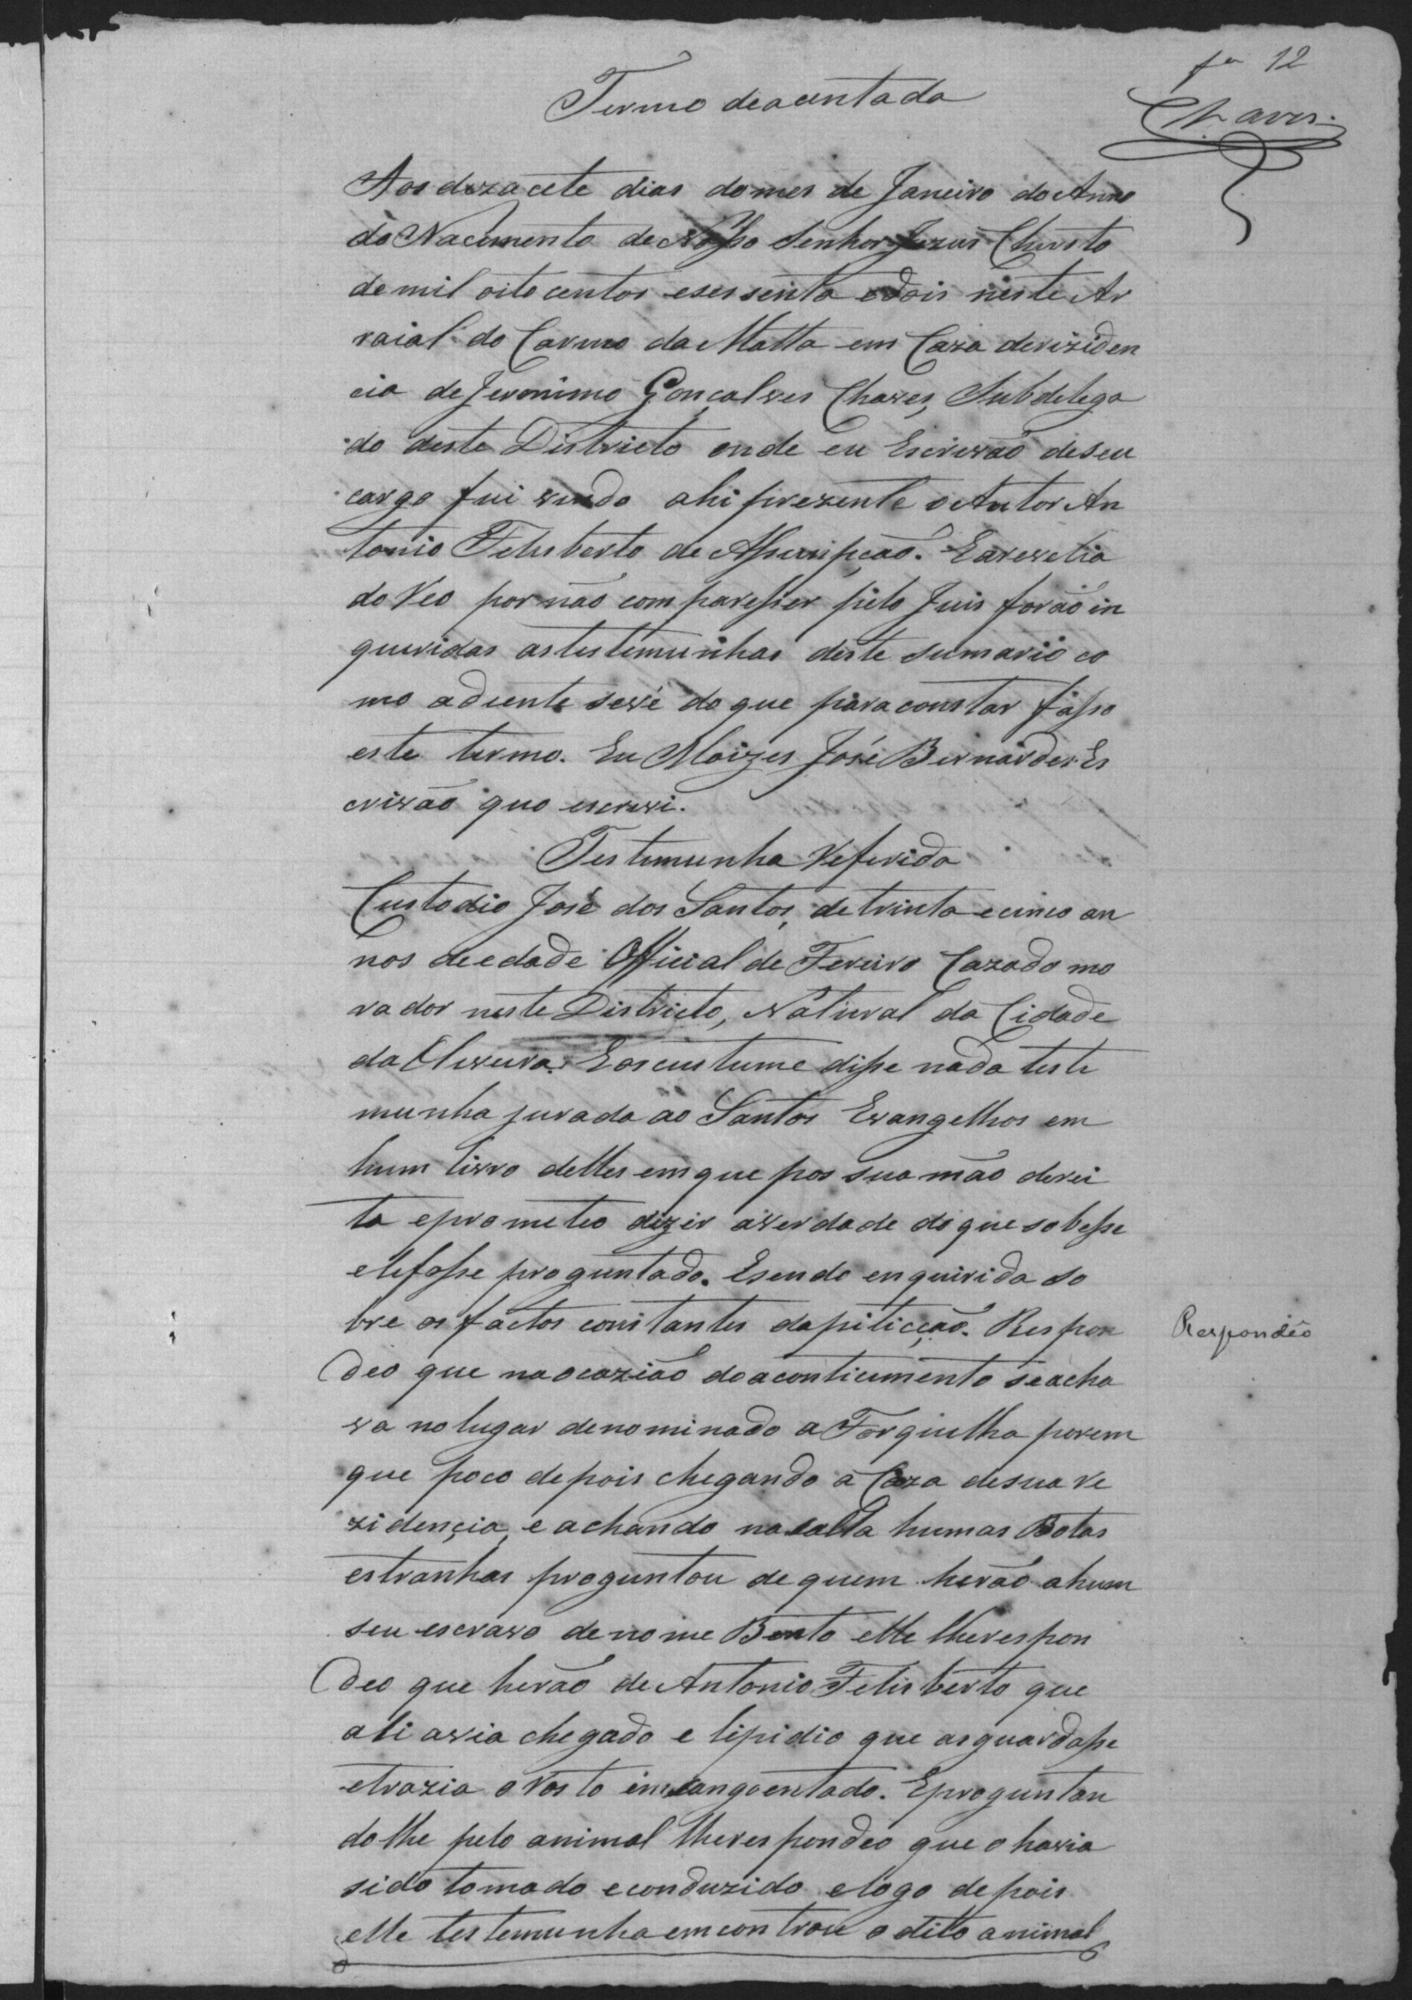 fª 12
Chaves
Termo deacentada
Aos dezacete dias domes de Janeiro do Anno
do Nacimento de Nosso Senhor Jezus Christo
de mil oito centos esessenta edois neste Ar
raial do Carmo da Matta em Caza deriziden
cia de Jeronimo Gonçalves Chaves, Subdelega
do deste Districto onde eu Escrivaõ deseu
cargo fui vindo ahi prezente o Autor An
tonio Felisberto de Assunpçaõ. Earevelia
do Reo por naõ comparesser pelo Juis foraõ in
queridas astestemunhas deste sumario co
mo adiente severé do que para constar fasso
este termo. Eu Moizes José Bernardes Es
crivaõ que escrevi.
Testemunha Referida
Custodio José dos Santos, de trinta ecinco an
nos deedade Official de Fereiro Cazado mo
rador neste Districto, Natural da Cidade
da Oliveira. Eoscustume disse nada teste
munha jurada ao Santos Evangelhos em
hum livro delles emque pos sua maõ derei
ta eprometeo dizer averdade do que sobesse
elefosse proguntado. Esendo enquirida so
bre os factos constantes dapiticçaõ. Respon
deo que naocaziaõ doaconticimento seacha
va nolugar denominado a Forquilha porem
que poco depois chegando a Caza desua re
zidençia, e achando nasalla humas Botas
estranhas proguntou de quem heraõ ahum
seu escravo de nome Bento elle lherespon
deo que heraõ de Antonio Felisberto que
ali avia chegado e lipidio que asguardasse
etrazia o rosto emsangoentado. Eproguntan
dolhe pelo animal lherespondeo que o havia
sido tomado econduzido elogo depois
elle testemunha emcontrou o dito animal
Respondêo